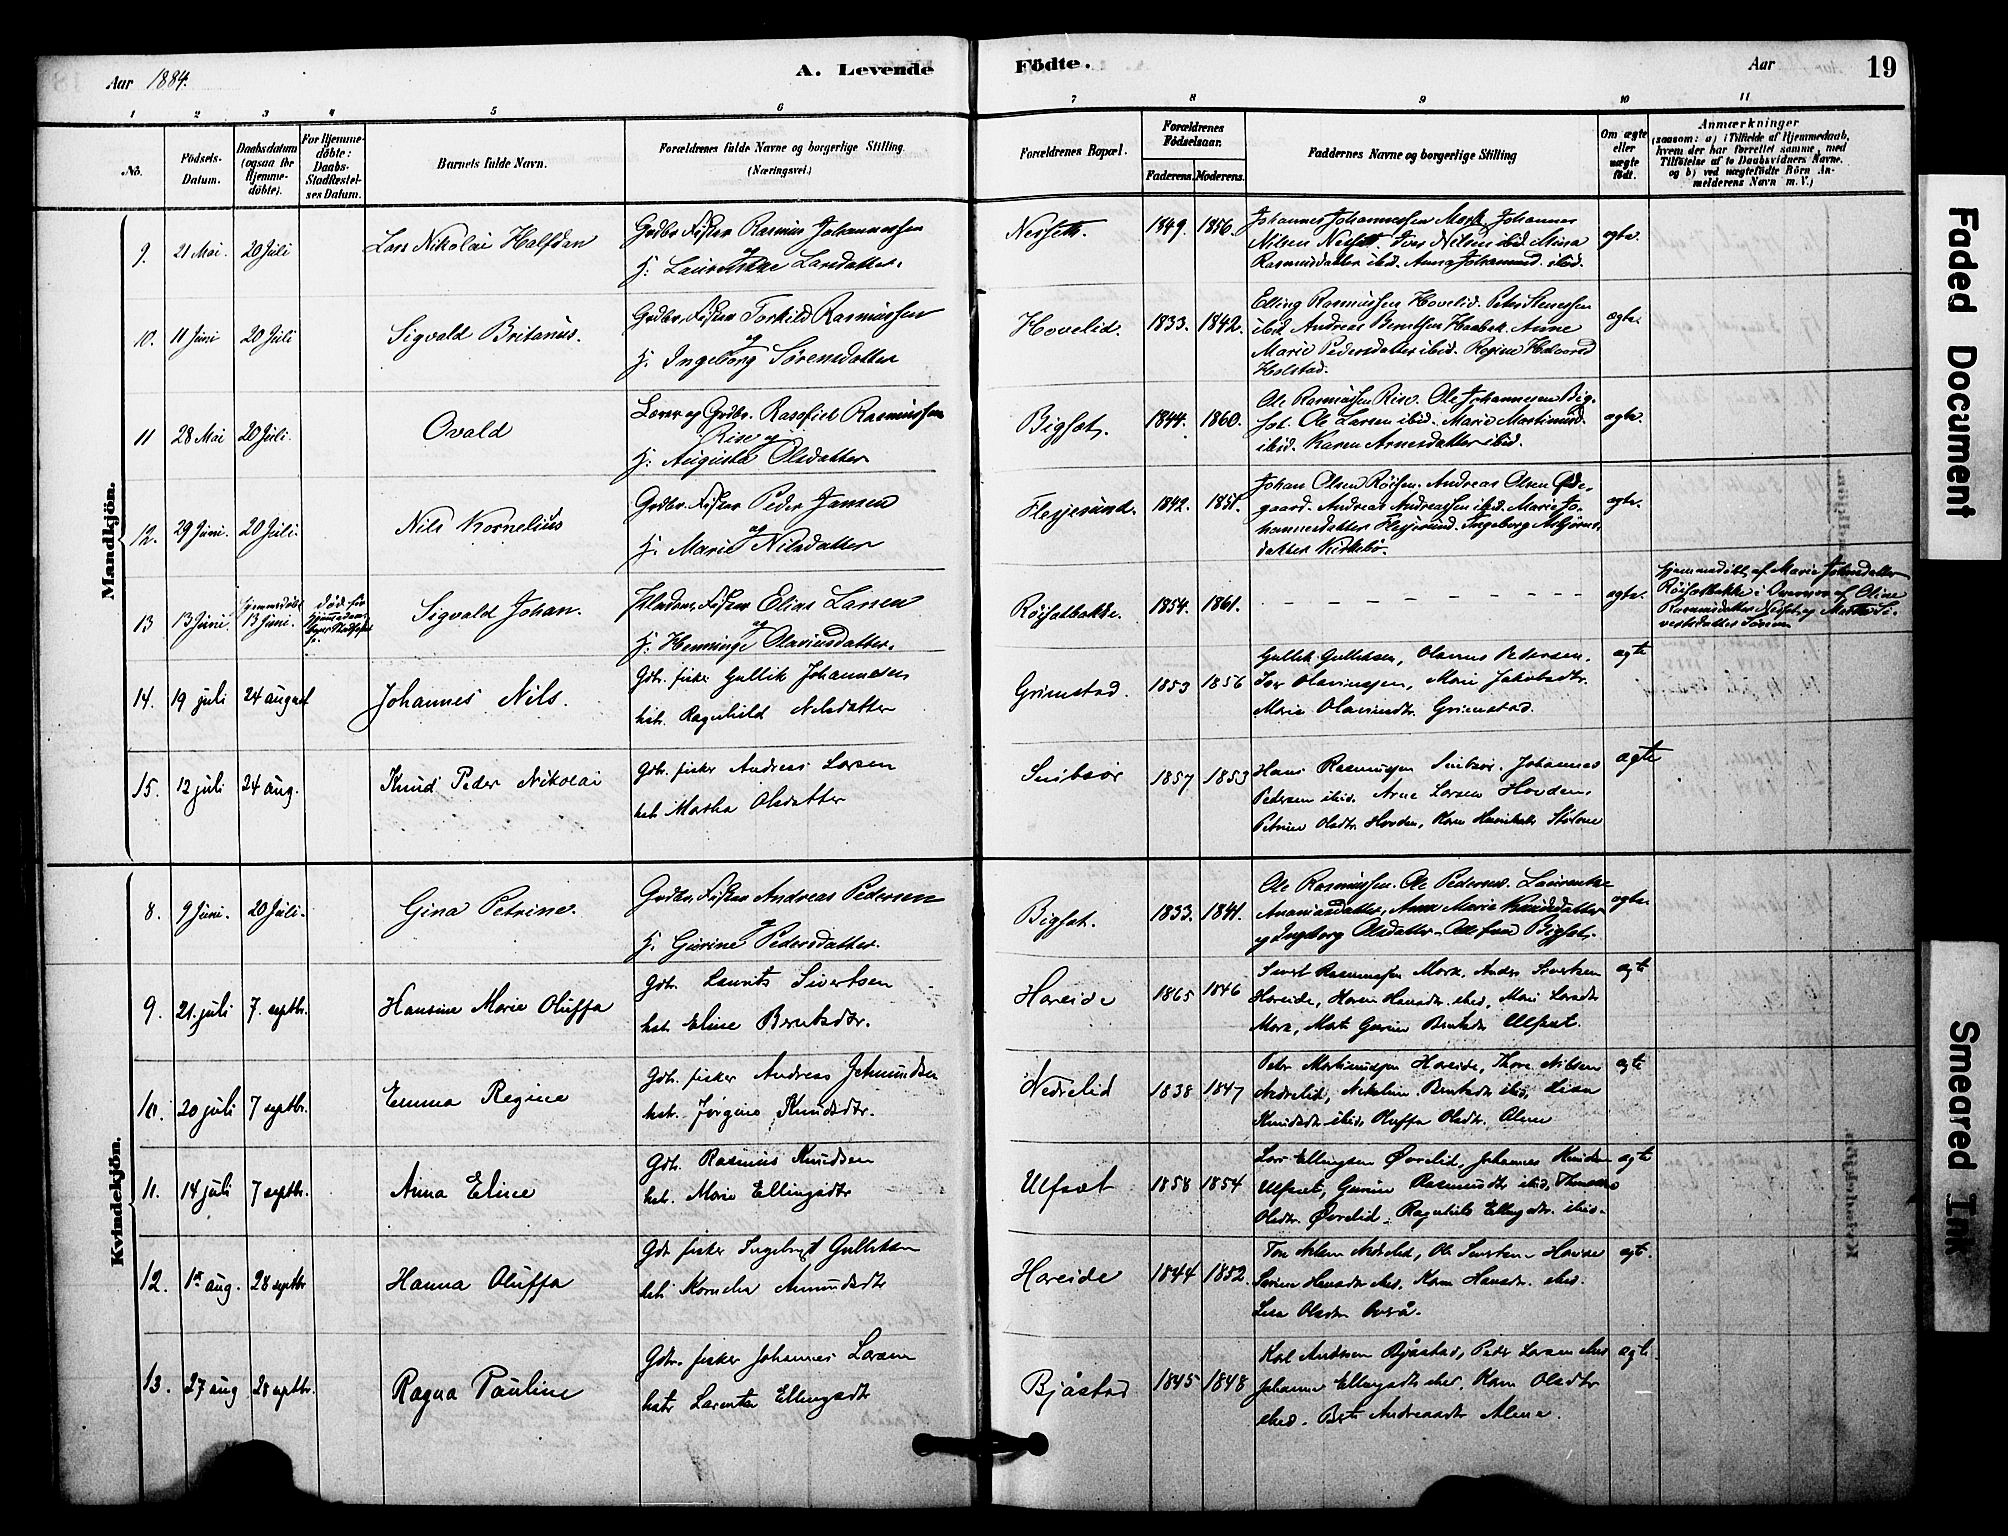 Aar 1884. A. Levende Födte. Aar 19
1 2 3 4 5 6 7 8 9 10 11
No. Födsels-Datum. Daabsdatum (ogsaa for Hjemme-döbte). For Hjemme-döbte: Daabs-Stadfæstel-ses Datum. Barnets fulde Navn. Forældrenes fulde Navne og borgerlige Stilling. (Næringsvei.) Forældrenes Bopæl. Forældrenes Födselsaar. Faderens. Moderens. Faddernes Navne og borgerlige Stilling Om ægte eller uægte födt. Anmærkninger (saasom: a) i Tilfælde af Hjemmedaab, hvem der har forrettet samme, med Tilföielse af to Daabsvidners Navne. og b) ved uægtefödte Börn An-melderens Navn m. V.)
Mandkjön.
9. 21 Mai. 20 Juli Lars Nikolai Halfdan Grdbr. Fisker Rasmus Johannessen og H. Lars­datter. Nesset. 1849. 1856. Johannes Johannessen Mork Johannes
Nilsen Nesset. Iver Nilsen ibid. Mina
Rasmusdatter ibid. Anna Johannesd. ibid. ægte.
10. 11 Juni 20 Juli Sigvald Britanus. Grdbr. Fisker Torkild Rasmussen og H. Ingeborg Sörensdatter Hovelid. 1833. 1842. Elling Rasmussen Hovelid. Peter
ibid Andreas Berntsen Anne
Marie Pedersdatter ibid. Regine
Holstad. ægte.
11 28 Mai 20 Juli. Ovald Lærer og Grdbr. Rasmussen Rise og H. Augusta Olsdatter Bigset. 1844. 1860. Ole Rasmussen Rise. Ole Johannesen Big-
set. Ole Larsen ibid. Marie Martinusd.
ibid. Karen Arnesdatter ibid. ægte.
12. 29 Juni. 20 Juli. Nils Kornelius Grdbr. Fisker Peder Jansen og H. Marie Nilsdatter Flesjesund. 1842. 1851. Johan Olsen Röisen. Andreas Olsen Öde-
gaard. Andreas Andreassen ibid. Marie Jo-
hannesdatter Flesjesund. Ingeborg
datter Kirkebö. ægte.
13 13 Juni. Hjemmedöbt 13 Juni. död före Sigvald Johan. Fisker Elias Larsen og H. Henninge Olariusdatter. Röisetbakke. 1854. 1861. – – – – – – – – ægte. Hjemmedöbt af Marie Johnsdatter
Röisetbakke i Overvær af Oline
Rasmusdatter og Marthe Si-
vertsdatter
14. 19 juli 24 august Johannes Nils. Gbr. fisker Gullik Johannesen
hst. Ragnhild Nilsdatter Grimstad. 1853 1856 Gullik Gulliksen, Olaus Pedersen.
Iver Olariussen, Marie Jakobsdtr.
Marie Grimstad. ægte
15. 12 juli 24 aug. Knud Peder Nikolai Gbr. fisker Andreas Larsen
hst. Martha Olsdatter Snibsör 1857 1853 Hans Rasmussen Snibsör. Johannes
Pedersen ibid. Arne Larsen Hovden,
Petrine Olsdtr Hovden, ægte
Kvindekjön.
8. 9 Juni. 20 Juli. Gina Petrine. Grdbr. Fisker Andreas Pedersen og H. Gurine Pedersdatter. Bigset. 1833. 1841. Ole Rasmussen. Ole Pedersen.
Ananiasdatter, Anne Marie Knudsdatter
og Ingeborg Olsdatter. Alle fra Bigset. ægte.
9. 21. juli 7. septbr. Hansine Marie Oluffa Gbr. Laurits Sivertsen
hst. Eline Berntsdtr. Hareide 1865 1846 Sivert Rasmussen Mork, Anders Sivertsen
Hareide, Hansdtr ibid, Mari Larsdtr
Mork, Gurine Berntsdtr Ulfset. ægte
10. 20 juli 7 septbr. Emma Regine Gbr. fisker Andreas Jetmundsen
hst. Jörgine Knudsdtr. Nedrelid 1838 1847 Peter Martinussen Hareide, Thore Nilsen
Nedrelid, Nikoline Berntsdtr ibid, Lisa
Knudsdtr ibid, Oluffa Olsdtr. ægte
11. 14 juli 7 septbr. Anna Eline Gbr. Rasmus Knudsen
hst. Marie Ellingsdtr Ulfset 1858 1854 Lars Ellingsen Övrelid, Johannes Knudsen
Ulfset, Gurine Rasmusdtr ibid,
Olsdtr. Övrelid. Ragnhild Ellingsdtr. ibid. ægte
12. 1st aug. 28 septbr Hanna Oluffa Gbr. fisker Ingebrigt Gulliksen
hst. Kornelia Amundsdtr Hareide 1844 1852. Nedrelid, Ole Sivertsen Hareide
Hansdtr ibid. Karen Hansdtr. ibid.
Lisa Olsdtr ægt.
13. 27 aug 28 septbr. Ragna Pauline Gbr. fisker Johannes Larsen
hst. Ellingsdtr Bjåstad 1845 1848 Karl Andersen Bjåstad, Peder Larsen ibid
Johanne Ellingsdtr ibid. Karen Olsdtr
ibid. Andreasdtr ægte.
Faded Document
Smeared Ink